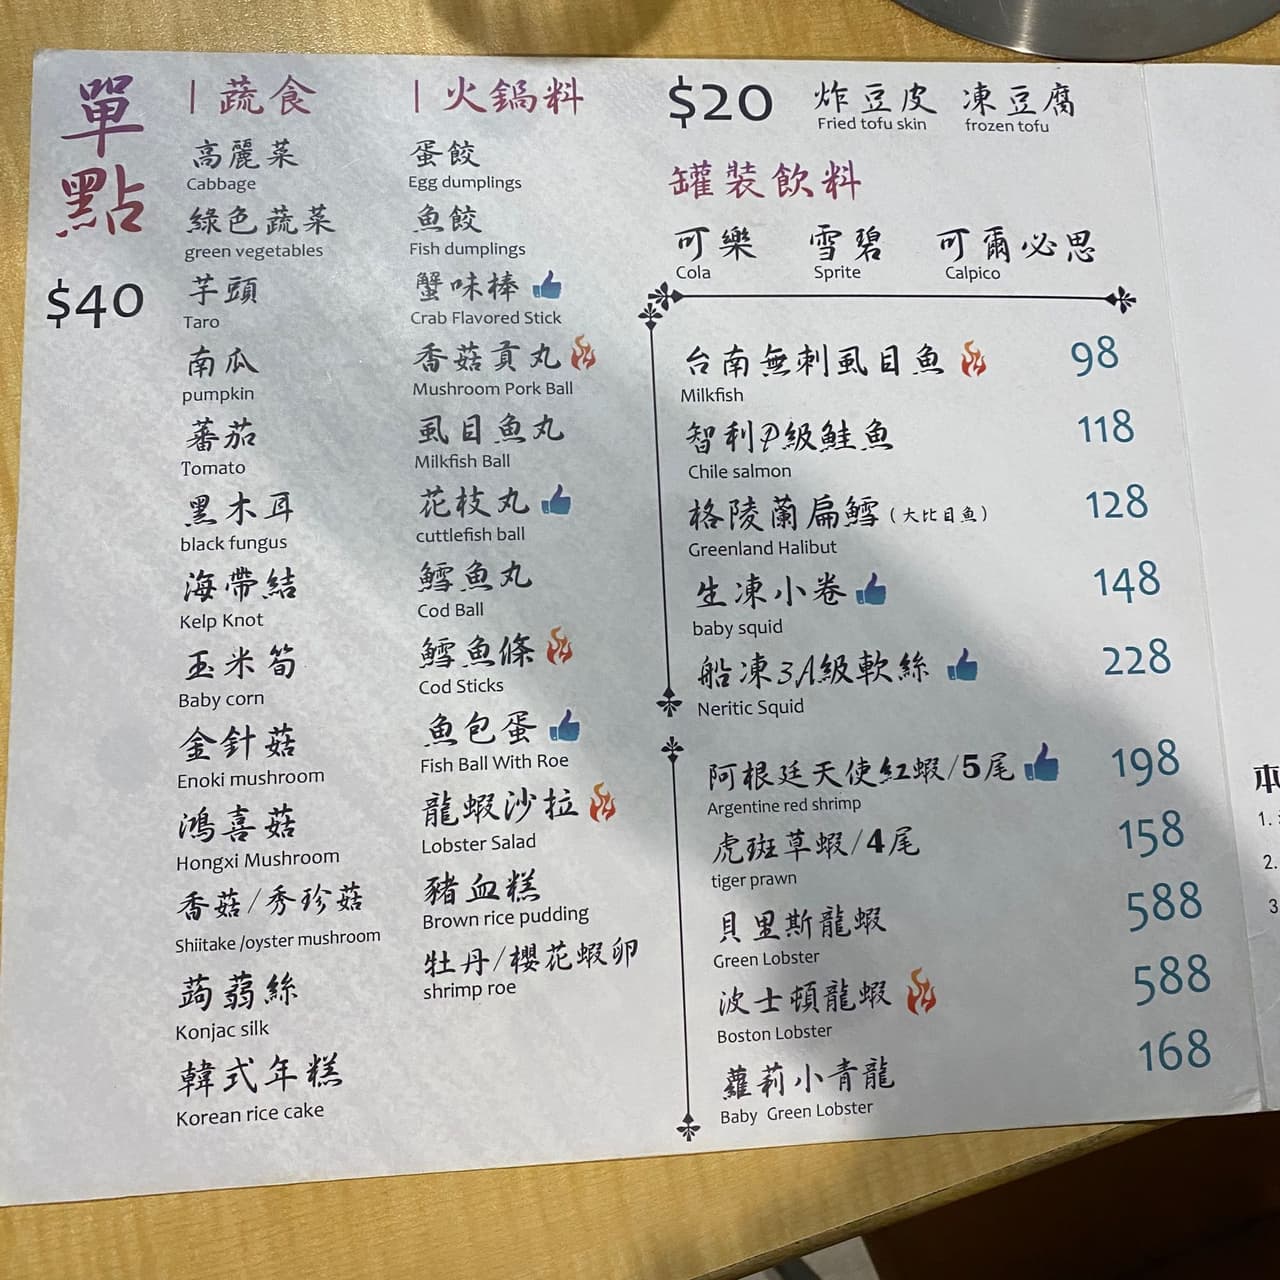 單點
$40
| 蔬食
高麗菜
Cabbage
綠色蔬菜
green vegetables
芋頭
Taro
南瓜
pumpkin
蕃茄
Tomato
黑木耳
black fungus
海帶結
Kelp Knot
玉米筍
Baby corn
金針菇
Enoki mushroom
鴻喜菇
Hongxi Mushroom
香菇/秀珍菇
Shiitake /oyster mushroom
蒟蒻絲
Konjac silk
韓式年糕
Korean rice cake
| 火鍋料
蛋餃
Egg dumplings
魚餃
Fish dumplings
蟹味棒
Crab Flavored Stick
香菇貢丸
Mushroom Pork Ball
虱目魚丸
Milkfish Ball
花枝丸
cuttlefish ball
鱈魚丸
Cod Ball
鱈魚條
Cod Sticks
魚包蛋
Fish Ball With Roe
龍蝦沙拉
Lobster Salad
豬血糕
Brown rice pudding
牡丹/櫻花蝦卵
shrimp roe
$20 炸豆皮 凍豆腐
Fried tofu skin frozen tofu
罐裝飲料
可樂 雪碧 可爾必思
Cola Sprite Calpico
台南無刺虱目魚 98
Milkfish
智利P級鮭魚 118
Chile salmon
格陵蘭扁鱈(大比目魚) 128
Greenland Halibut
生凍小卷 148
baby squid
船凍3A級軟絲 228
Neritic Squid
阿根廷天使紅蝦/5尾 198
Argentine red shrimp
虎斑草蝦/4尾 158
tiger prawn
貝里斯龍蝦 588
Green Lobster
波士頓龍蝦 588
Boston Lobster
蘿莉小青龍 168
Baby Green Lobster
本
1.
2.
3